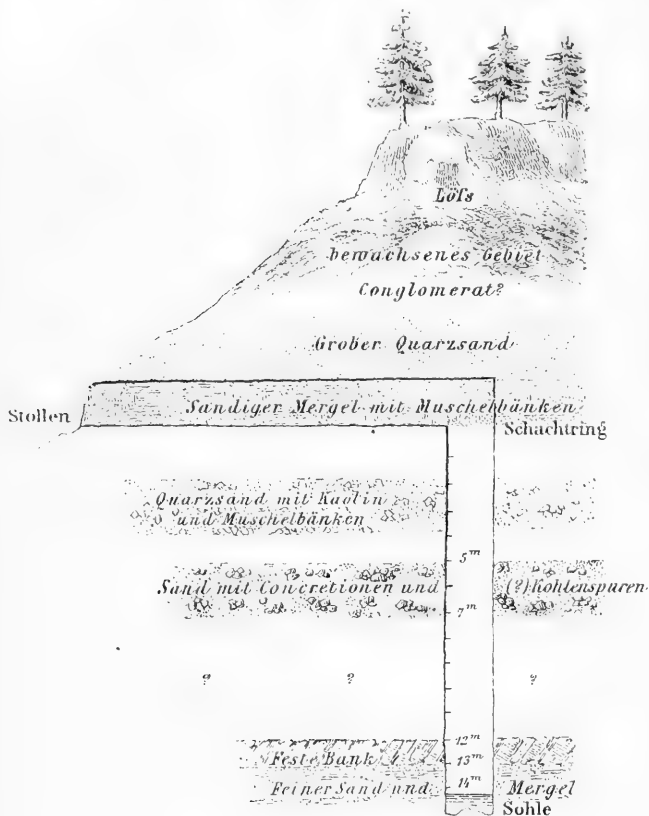 Löſs
bewachsenes Gebiet
Conglomerat?
Grober Quarzsand
Stollen
Sandiger Mergel mit Muschelbänken
Schachtring
Quarzsand mit Kaolin
und Muschelbänken
5m
Sand mit Concretionen und (?) Kohlenspuren.
7m
? ? ?
12m
Feste Bank 13m
14m
Feiner Sand und Mergel
Sohle